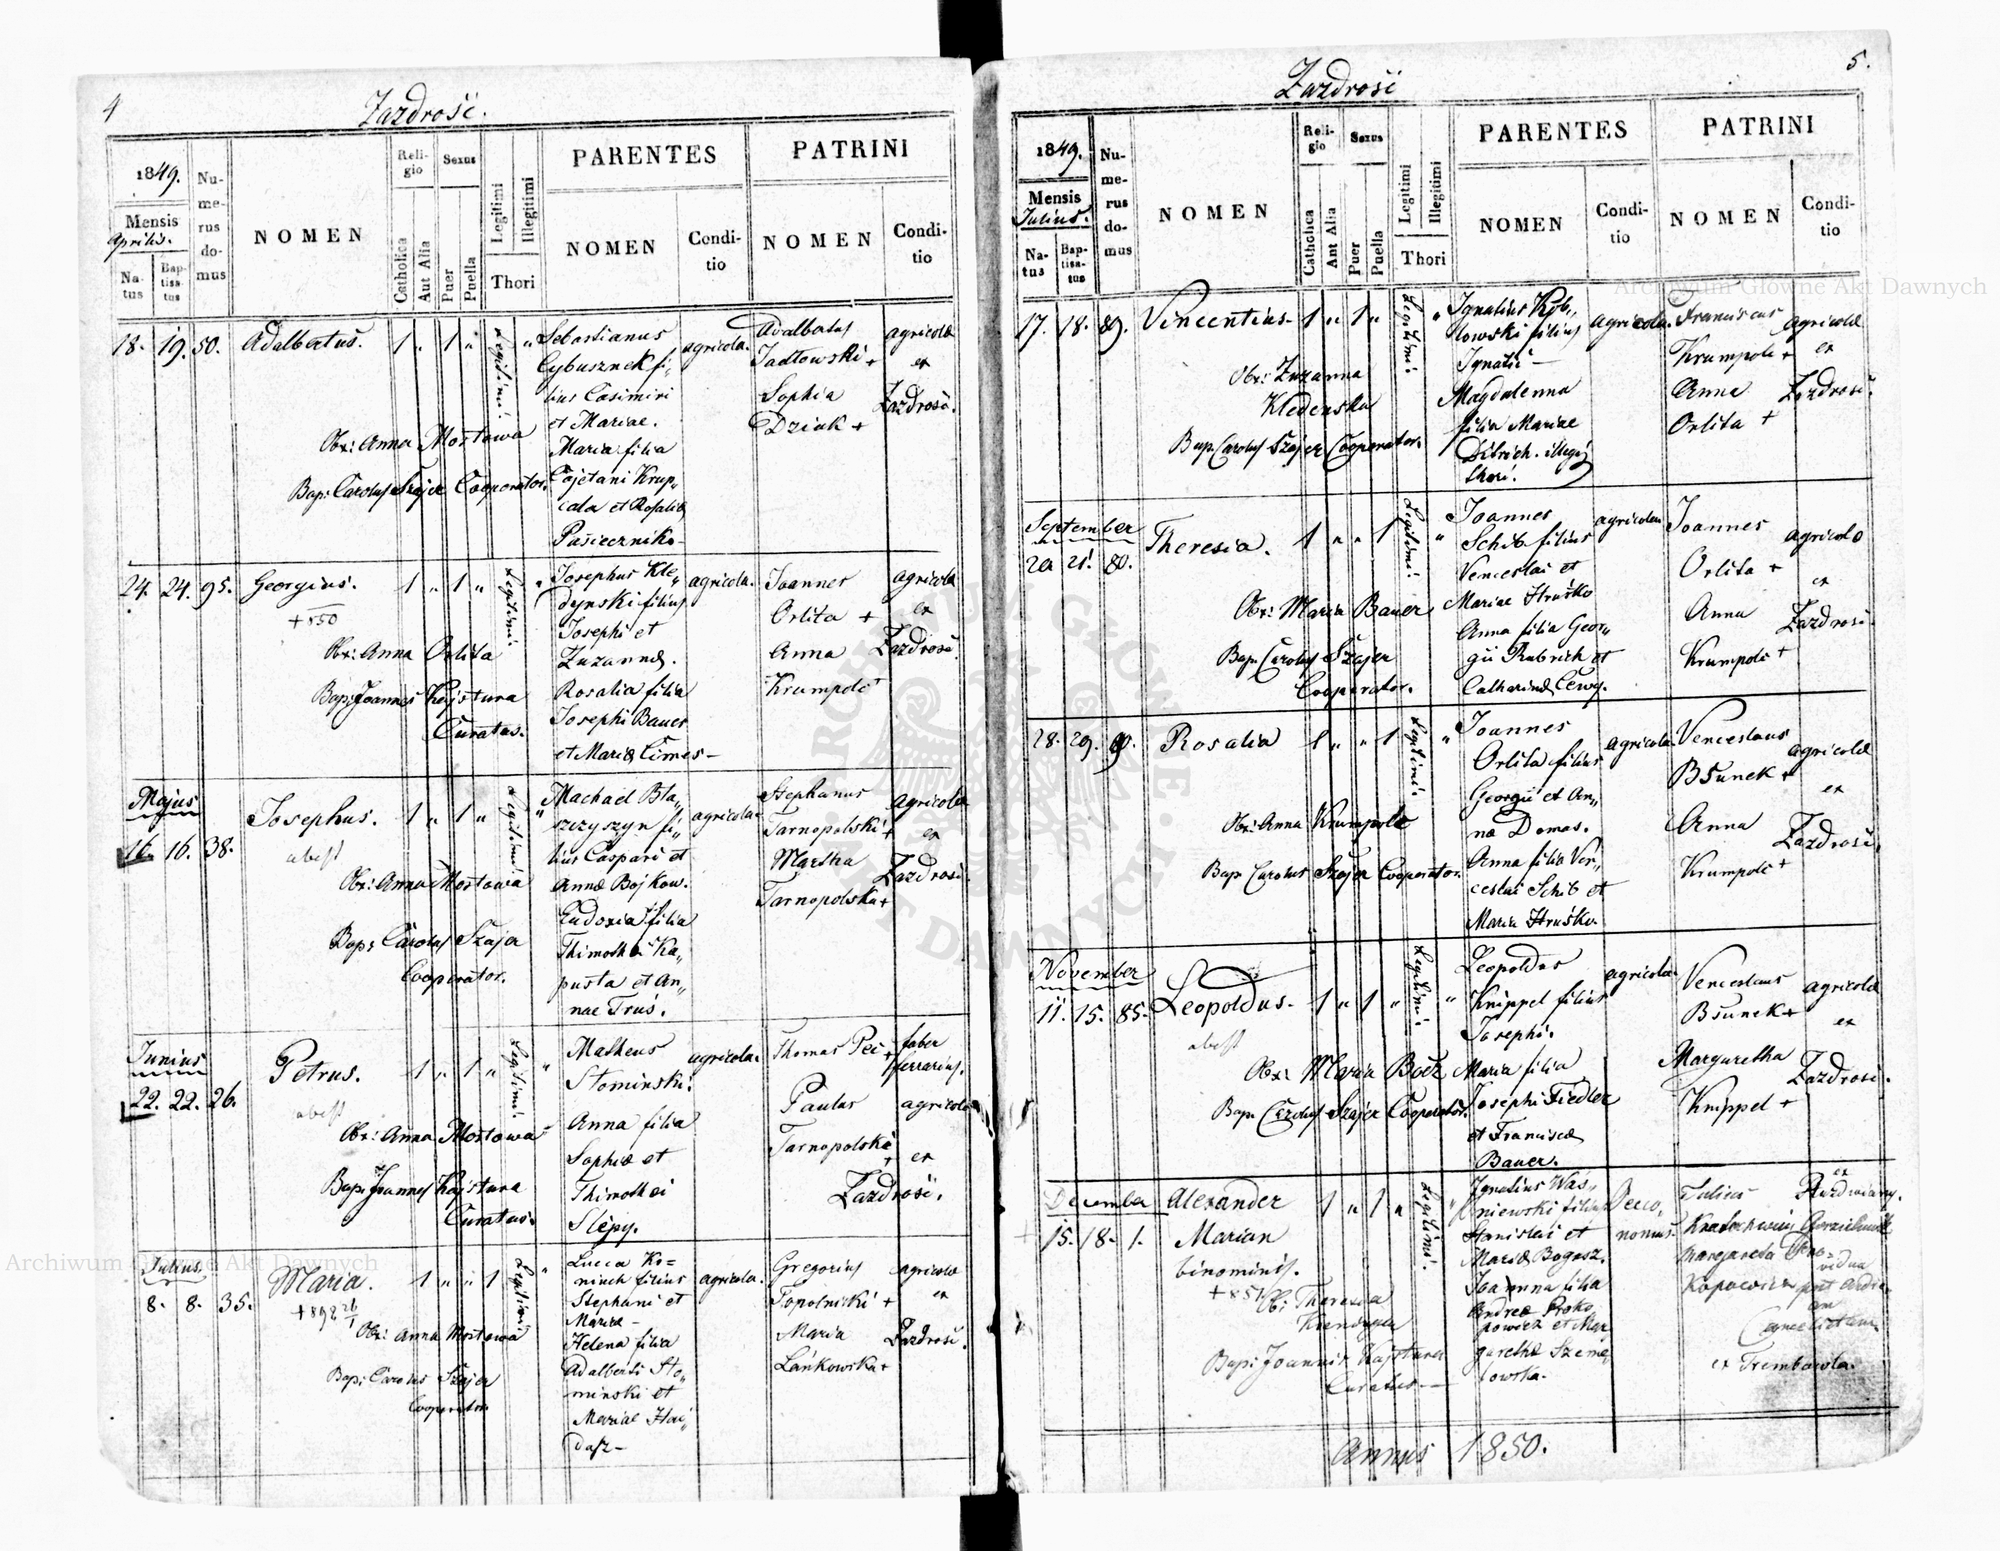 4
Zazdrość.
1849.
Mensis
Aprilis.
Natus
Baptisatus
Numerus domus
NOMEN
Religio
Catholica
Aut Alia
Sexus
Puer
Puella
Legitimi
Illegitimi
Thori
PARENTES
NOMEN
Conditio
PATRINI
NOMEN
Conditio
18. 19. 50. Adalbertus. 1 " 1 " Legitimi "
Obx: Anna Mostowa
Bap: Carolus Szajer Cooperator.
Sebastianus
Cybusznek fi„
lius Casimiri
et Mariae.
Maria filia
Cajetani Krup„
cala et Rosaliæ
agricola.
Adalbertus
Sophia
Dziuk +
agricolæ
ex
Zazdrość.
24. 24. 95. Georgius. 1 " 1 " Legitimi "
+ 850
Obx: Anna Orlita
Bap: Joannes Kajstura
Curatus.
Josephus Kle„
dynski filius
Josephi et
Zuzannæ.
Rosalia filia
Josephi Bauer
et Mariæ Cimes –
agricola.
Joannes
Orlita +
Anna
Krumpolc +
agricolæ
ex
Zazdrość.
Majus
16. 16. 38. Josephus. 1 " 1 " Legitimi "
abest
Obx: Anna Mostowa
Bap: Carolus Szajer
Cooperator.
Machael Bla„
szczyszyn fi„
lius Caspari et
Annæ Bojkow.
Eudoxia filia
Thimothei Ka„
pusta et An„
nae Truś.
agricola.
Stephanus
Tarnopolski +
Martha
Tarnopolska +
agricolæ
ex
Zazdrość.
Junius
22. 22. 26. Petrus. 1 " 1 " Legitimi "
abest
Obx: Anna Mostowa
Bap: Joannes Kajstura
Curatus.
Matheus
Stominski.
Anna filia
Sophiæ et
Thimothei
Slepy.
agricola.
Thomas Pec +
Paulus
Tarnopolski
+
faber
ferrarius.
agricola
ex
Zazdrość.
Julius.
8. 8. 35. Maria. 1 " " 1 Legitimi "
+ 898 26/1
Obx: Anna Mostowa
Bap: Carolus Szajer
Cooperator
Lucca Ko=
niuch filius
Stephani et
Mariæ –
Helena filia
Adalberti Sto„
minski et
Mariae Hai„
dasz –
agricola.
Gregorius
Topolnicki +
Maria
Lańkowska +
agricolæ
ex
Zazdrość.
5.
Zazdrość
1849.
Mensis
Julius.
Natus
Baptisatus
Numerus domus
NOMEN
Religio
Catholica
Aut Alia
Sexus
Puer
Puella
Legitimi
Illegitimi
Thori
PARENTES
NOMEN
Conditio
PATRINI
NOMEN
Conditio
17. 18. 89. Vincentius. 1 " 1 " Legitimi "
Obx: Zuzanna
Kledenska
Bap: Carolus Szajer Cooperator.
Ignatius Kob„
lowski filius
Ignatii –
Magdalenna
filia Mariae
Ditrich. illegi
thori.
agricola.
Franciscus
Krumpolc +
Anna
Orlita +
agricolæ
ex
Zazdrość.
September
20 21. 80. Theresia. 1 " " 1 Legitimi "
Obx: Maria Bauer
Bap: Carolus Szajer
Cooperator.
Joannes
Schib filius
Venceslai et
Mariae Hruśko
Anna filia Geor„
gii Rubrich et
agricola
Joannes
Orlita +
Anna
Krumpolc +
agricolæ
ex
Zazdrość.
28. 29. 90. Rosalia 1 " " 1 Legitimi "
Obx: Anna Krumpolc
Bap: Carolus Szajer Cooperator.
Joannes
Orlita filius
Georgii et An„
næ Domas.
Anna filia Ven„
ceslai Schib et
Maria Hruśko
agricola.
Venceslaus
Bšunek +
Anna
Krumpolc +
agricolæ
ex
Zazdrość.
November
11. 15. 85. Leopoldus. 1 " 1 " Legitimi "
abest
Obx: Maria Bočz
Bap: Carolus Szajer Cooperator.
Leopoldus
Knippel filius
Josephi.
Maria filia
Josephi Fiedler
et Franciscæ
Bauer.
agricola
Venceslaus
Bšunek +
Margaretha
Knippel +
agricolæ
ex
Zazdrość.
December
15. 18. 1. Alexander 1 " 1 " Legitimi "
Marian
binominis.
+ 851
Ob: Theresia
Bap: Joannes Kajstura
Curatus. –
Ignatius Waś„
niewski filius
Stanislai et
Mariæ Bogusz.
Joanna filia
Andreæ Proko„
powicz et Mar
garethæ Szeme„
lowska.
Oeco„
nomus.
Julius
Margareta
ex
vidua
ex Trembowla.
Annus 1850.
Archiwum Główne Akt Dawnych
Archiwum Główne Akt Dawnych
ARCHIWUM GŁÓWNE AKT DAWNYCH